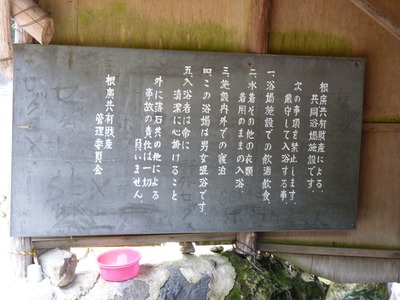 根席共有財産による、
共同浴場施設です。
次の事項を禁止します。
厳守して入浴する事。
一、浴場施設での飲酒飲食。
二、水着その他の衣類
着用のままの入浴。
三、施設内外での宿泊
四、この浴場は男女混浴です。
五、入浴者は常に
清潔に心掛けること
外に落石其の他による
事故の責任は一切
負いません。
根席共有財産
管理委員会